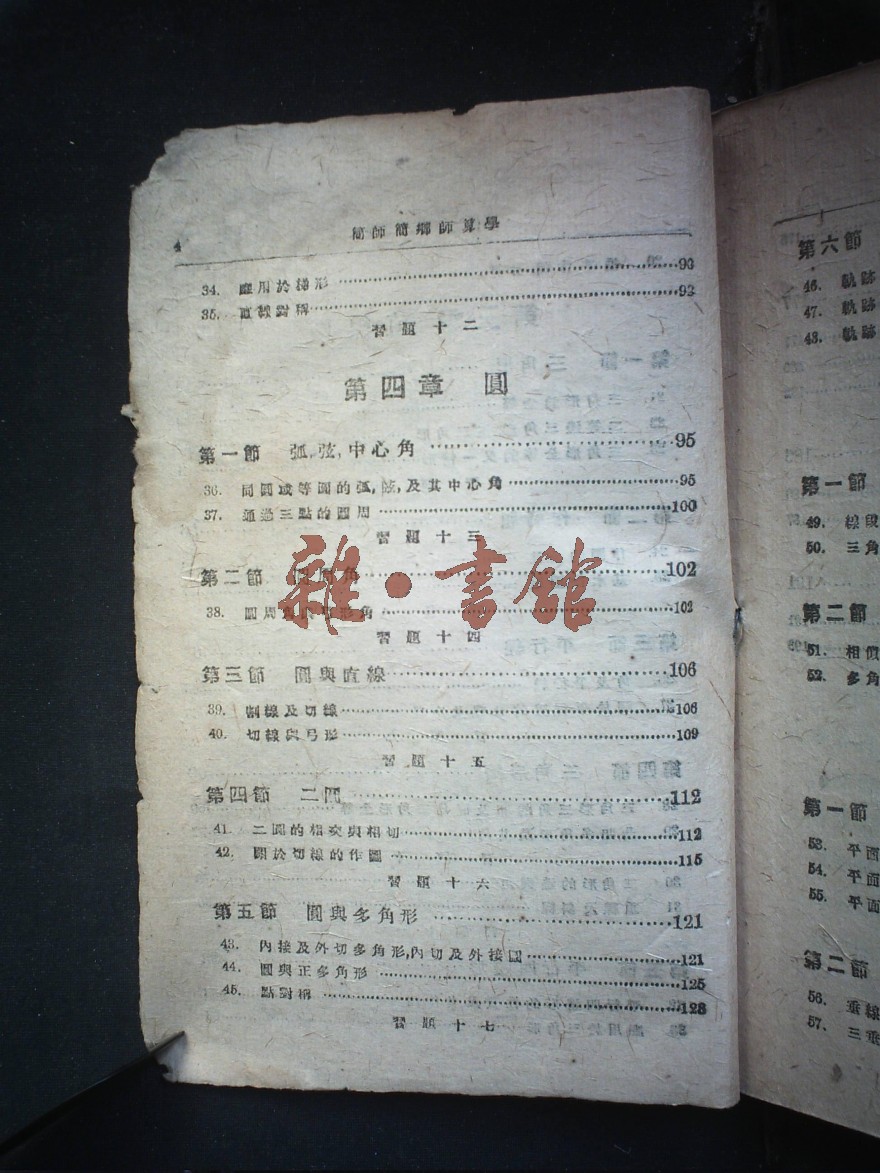 4 簡師簡鄉師算學
34. 應用於梯形 90
35. 直線對稱 92
習題十二
第四章 圓
第一節 弧,弦,中心角 95
36. 同圓或等圓的弧,弦,及其中心角 95
37. 通過三點的圓周 100
習題十三
第二節 角 102
38. 圓周角 角 102
習題十四
第三節 圓與直線 106
39. 割線及切線 106
40. 切線與弓形 109
習題十五
第四節 二圓 112
41. 二圓的相交與相切 112
42. 關於切線的作圖 115
習題十六
第五節 圓與多角形 121
43. 內接及外切多角形,內切及外接圓 121
44. 圓與正多角形 125
45. 點對稱 128
習題十七
雜·書館
第六節
46. 軌跡
47. 軌跡
48. 軌跡
第一節
49. 線段
50. 三角
第二節
51. 相似
52. 多角
第一節
53. 平面
54. 平面
55. 平面
第二節
56. 垂線
57. 三垂